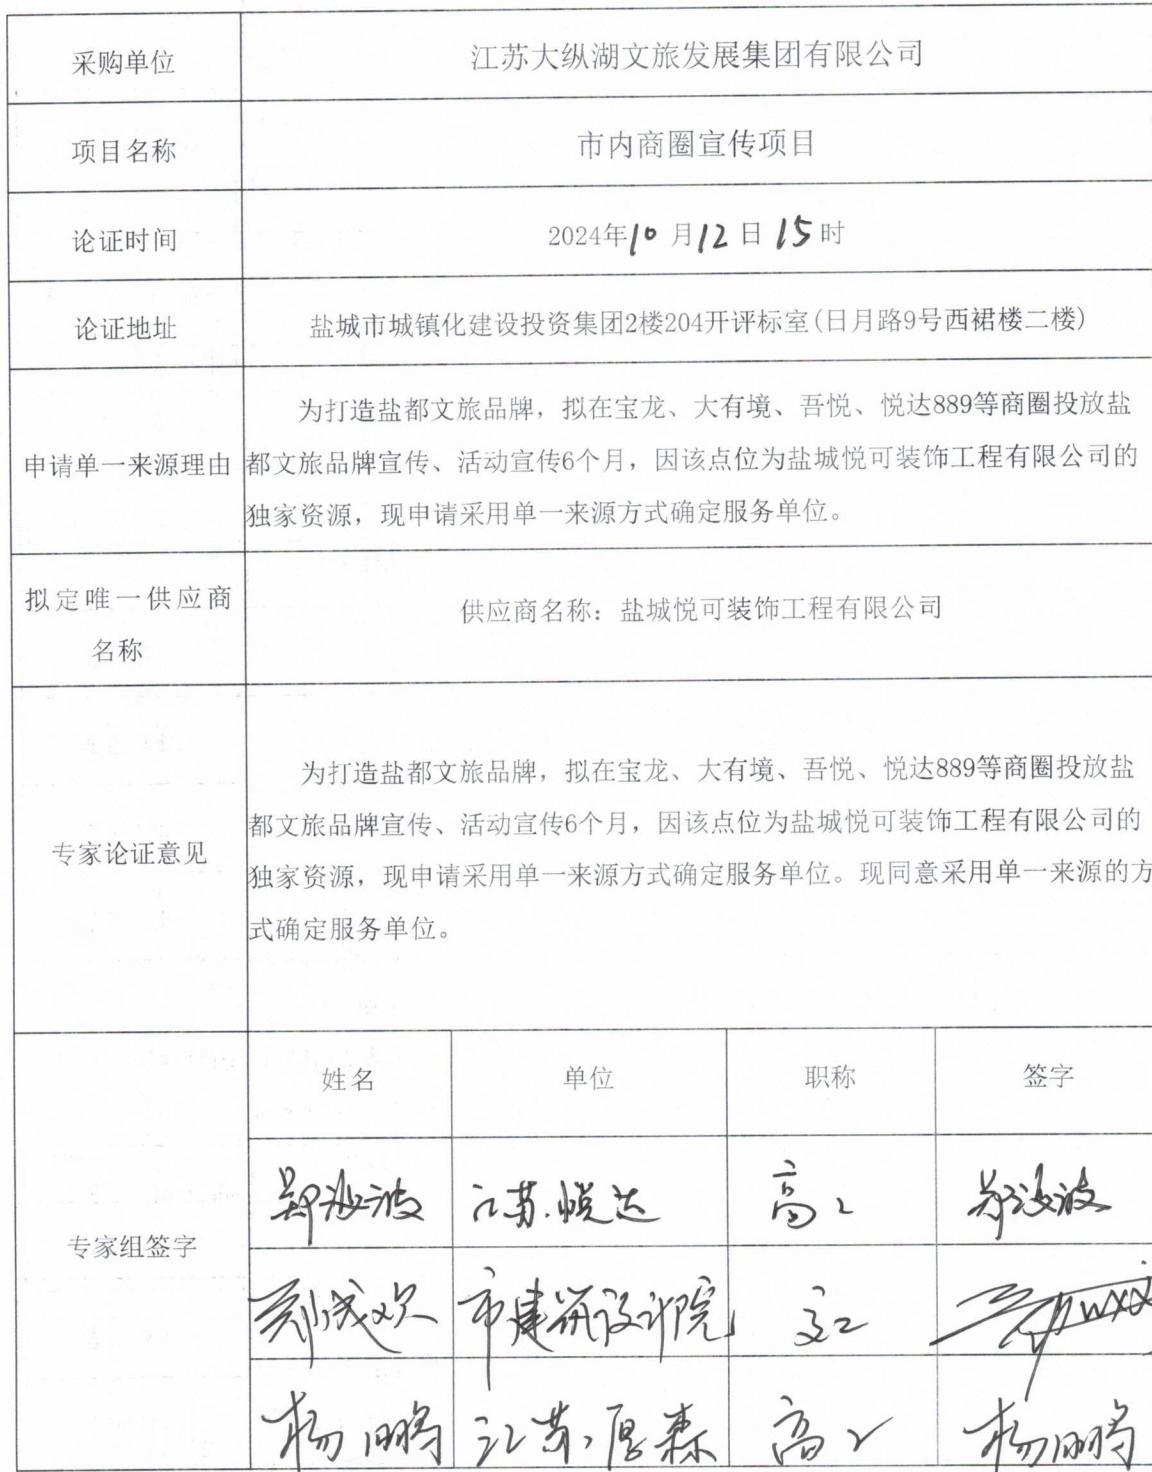 采购单位 江苏大纵湖文旅发展集团有限公司
项目名称 市内商圈宣传项目
论证时间 2024年10月12日15时
论证地址 盐城市城镇化建设投资集团2楼204开评标室(日月路9号西裙楼二楼)
为打造盐都文旅品牌，拟在宝龙、大有境、吾悦、悦达889等商圈投放盐
申请单一来源理由 都文旅品牌宣传、活动宣传6个月，因该点位为盐城悦可装饰工程有限公司的
独家资源，现申请采用单一来源方式确定服务单位。
拟定唯一供应商
名称
供应商名称：盐城悦可装饰工程有限公司
为打造盐都文旅品牌，拟在宝龙、大有境、吾悦、悦达889等商圈投放盐
都文旅品牌宣传、活动宣传6个月，因该点位为盐城悦可装饰工程有限公司的
专家论证意见
独家资源，现申请采用单一来源方式确定服务单位。现同意采用单一来源的方
式确定服务单位。
姓名 单位 职称 签字
江苏悦达 高工
专家组签字
市建筑设计院 高工
杨鹏 江苏厚森 高工 杨鹏